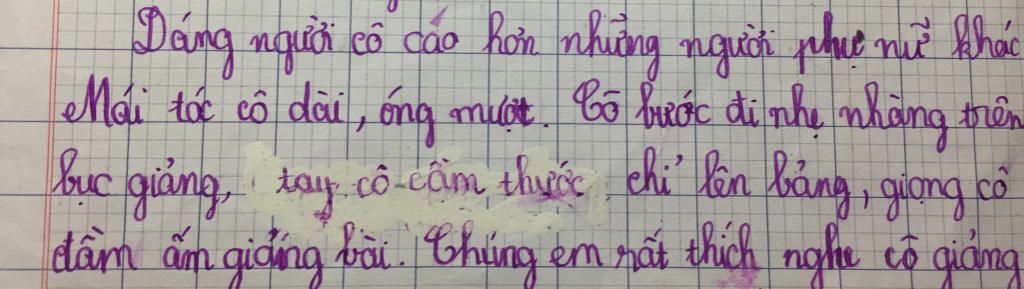 Dáng người cô cáo hơn những người phụ nữ khác
Mái tóc cô dài, óng mượt. Cô bước đi nhẹ nhàng trên
bục giảng, tay cô cầm thước chỉ lên bảng, giọng cô
đầm ấm giảng bài. Chúng em rất thích nghe cô giảng